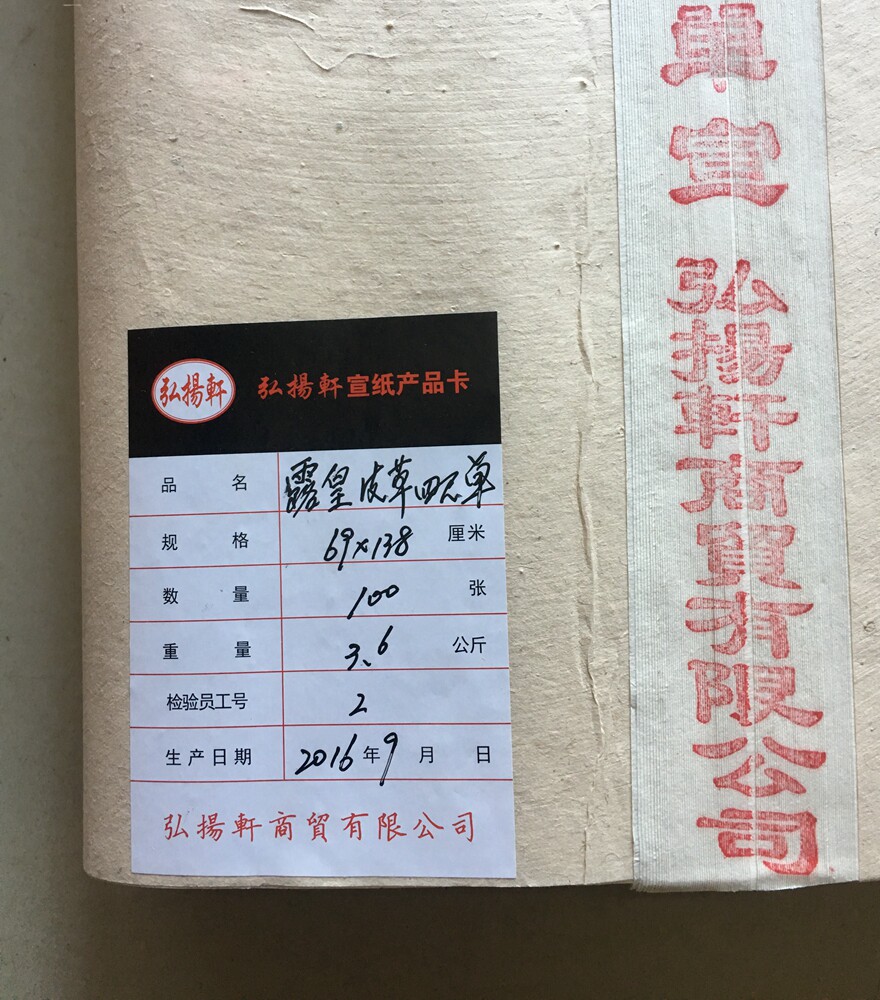 弘揚軒
弘揚軒宣纸产品卡
品 名 露皇皮草四尺单
规 格 69×138 厘米
数 量 100 张
重 量 3.6 公斤
检验员工号 2
生产日期 2016年9月 日
弘揚軒商貿有限公司
單宣 弘揚軒商貿有限公司